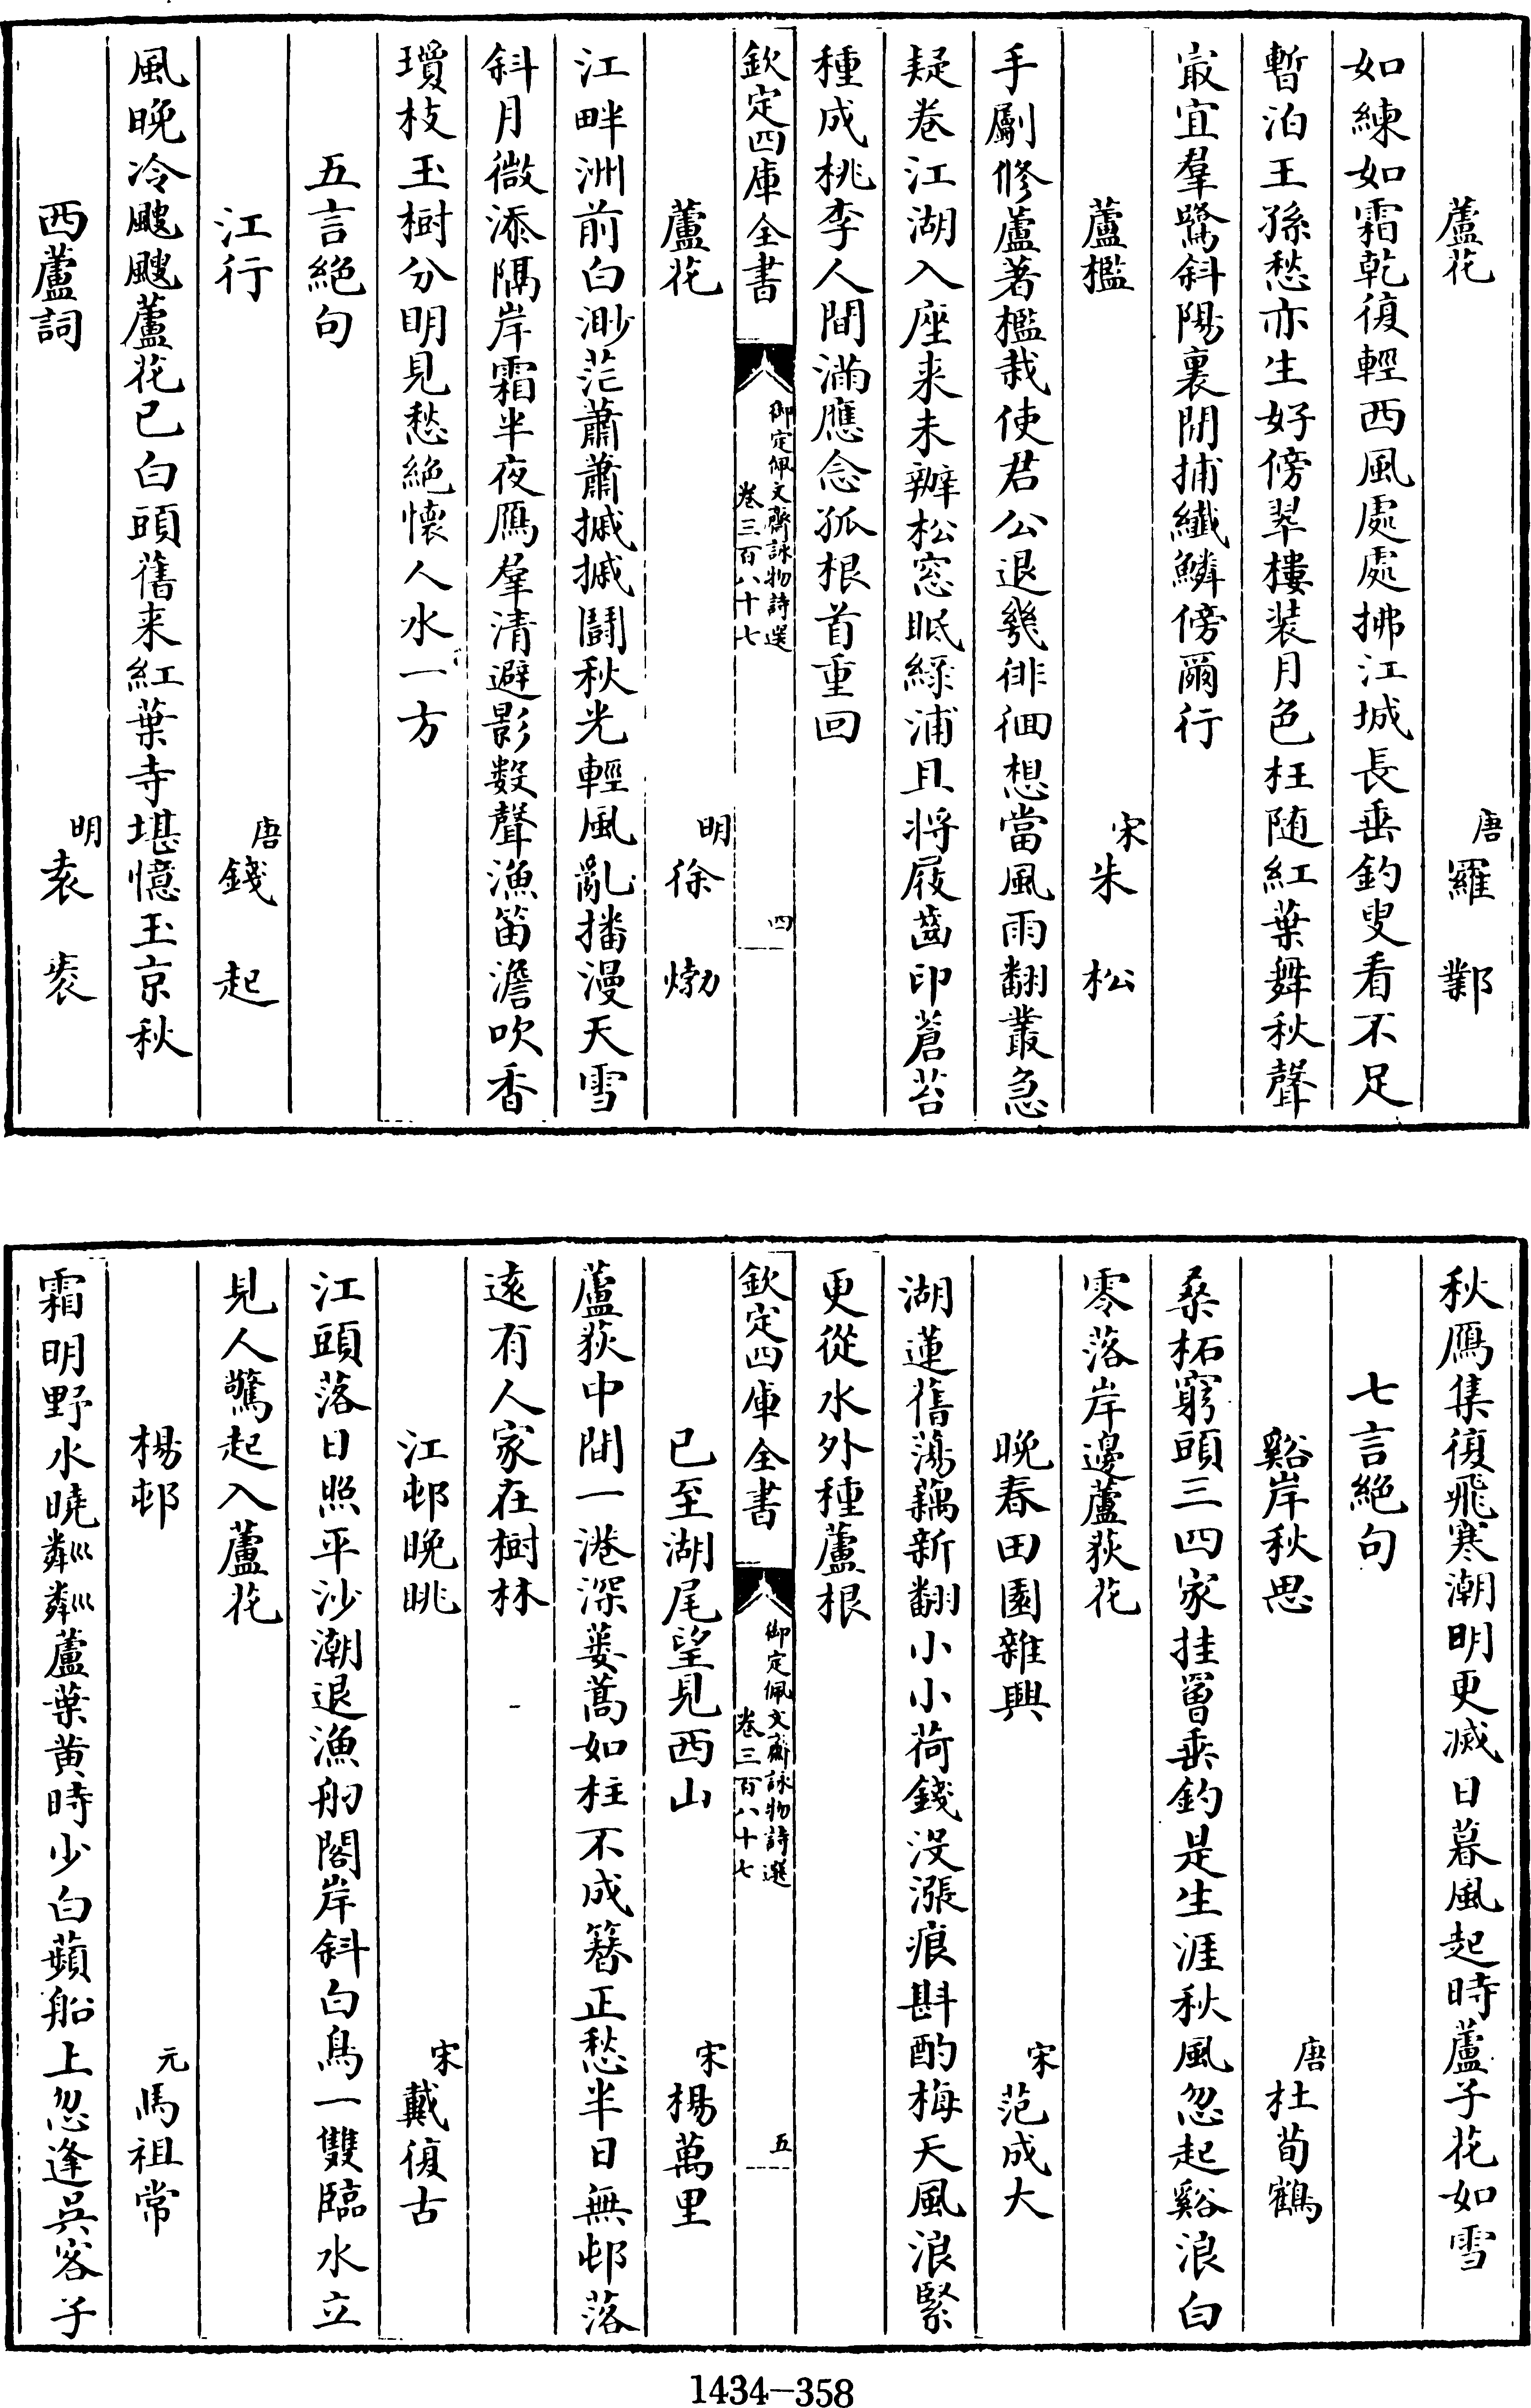 蘆花 唐 羅鄴
如練如霜乾復輕西風處處拂江城長垂釣叟看不足
暫泊王孫愁亦生好傍翠樓装月色枉随紅葉舞秋聲
㝡宜羣鷺斜陽裏閒捕纖鱗傍爾行
蘆檻 宋 朱松
手劚修蘆著檻栽使君公退幾徘徊想當風雨翻叢急
疑卷江湖入座来未辦松窓眠緑浦且将屐齒印蒼苔
種成桃李人間滿應念孤根首重回
欽定四庫全書 御定佩文齋詠物詩選 卷三百八十七 四
蘆花 明 徐㶿
江畔洲前白渺茫蕭蕭摵摵鬪秋光輕風亂播漫天雪
斜月微添隔岸霜半夜鴈羣清避影数聲漁笛澹吹香
瓊枝玉樹分明見愁絕懷人水一方
五言絕句
江行 唐 錢起
風晚冷颼颼蘆花已白頭舊来紅葉寺堪憶玉京秋
西蘆詞 明 袁裘
秋鴈集復飛寒潮明更滅日暮風起時蘆子花如雪
七言絕句
谿岸秋思 唐 杜荀鶴
桑柘窮頭三四家挂罾垂釣是生涯秋風忽起谿浪白
零落岸邊蘆荻花
晚春田園雜興 宋 范成大
湖蓮舊蕩藕新翻小小荷錢没漲痕斟酌梅天風浪緊
更從水外種蘆根
欽定四庫全書 御定佩文齋詠物詩選 卷三百八十七 五
已至湖尾望見西山 宋 楊萬里
蘆荻中間一港深蔞蒿如柱不成簪正愁半日無邨落
遠有人家在樹林
江邨晚眺 宋 戴復古
江頭落日照平沙潮退漁舠閣岸斜白鳥一雙臨水立
見人驚起入蘆花
楊邨 元 馬祖常
霜明野水曉粼粼蘆葉黄時少白蘋船上忽逢吳客子
1434-358